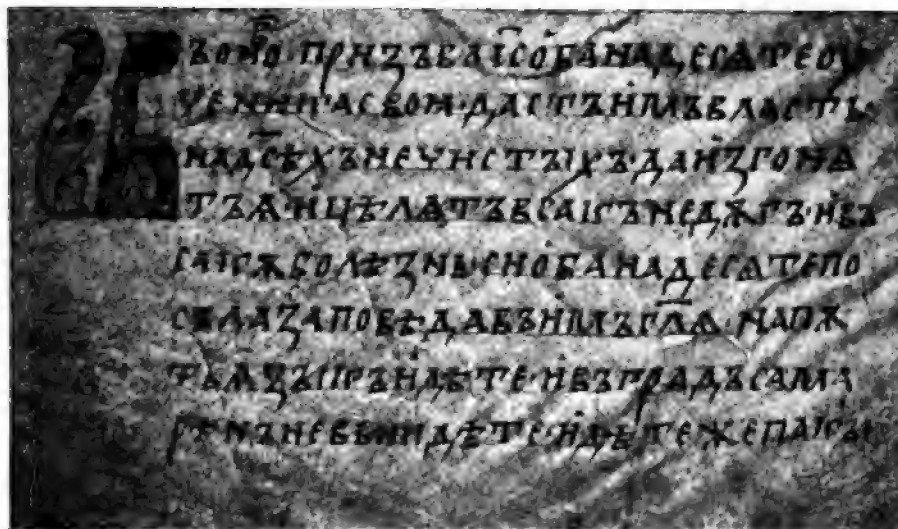 ВЪОНО ПРИЗЪВАІСОБАНАДЕСѦТЕОУ
ЧЕННКАСВОѨ·ДАСТЪИМЪВЛАСТЬ·
НАДСѢХЪНЕЧИСТЪІХЪ·ДАИЗГОНѦ
ТЪѦ·ИЦѢЛѦТЪВСАКЪНЕДѪГЪ·ИВЪ
САКѪБОЛѢЗНЬ·СИОБАНАДЕСѦТЕПО
СЪЛАЗАПОВѢДАВЪИМЪГЛѦ·НАПѪ
ТЬѨЗЫКЪИДѢТЕ·ИВЪГРАДЪСАМА
РЕНЪНЕВЬНИДѢТЕ·ИДѢТЕЖЕПАКЫ